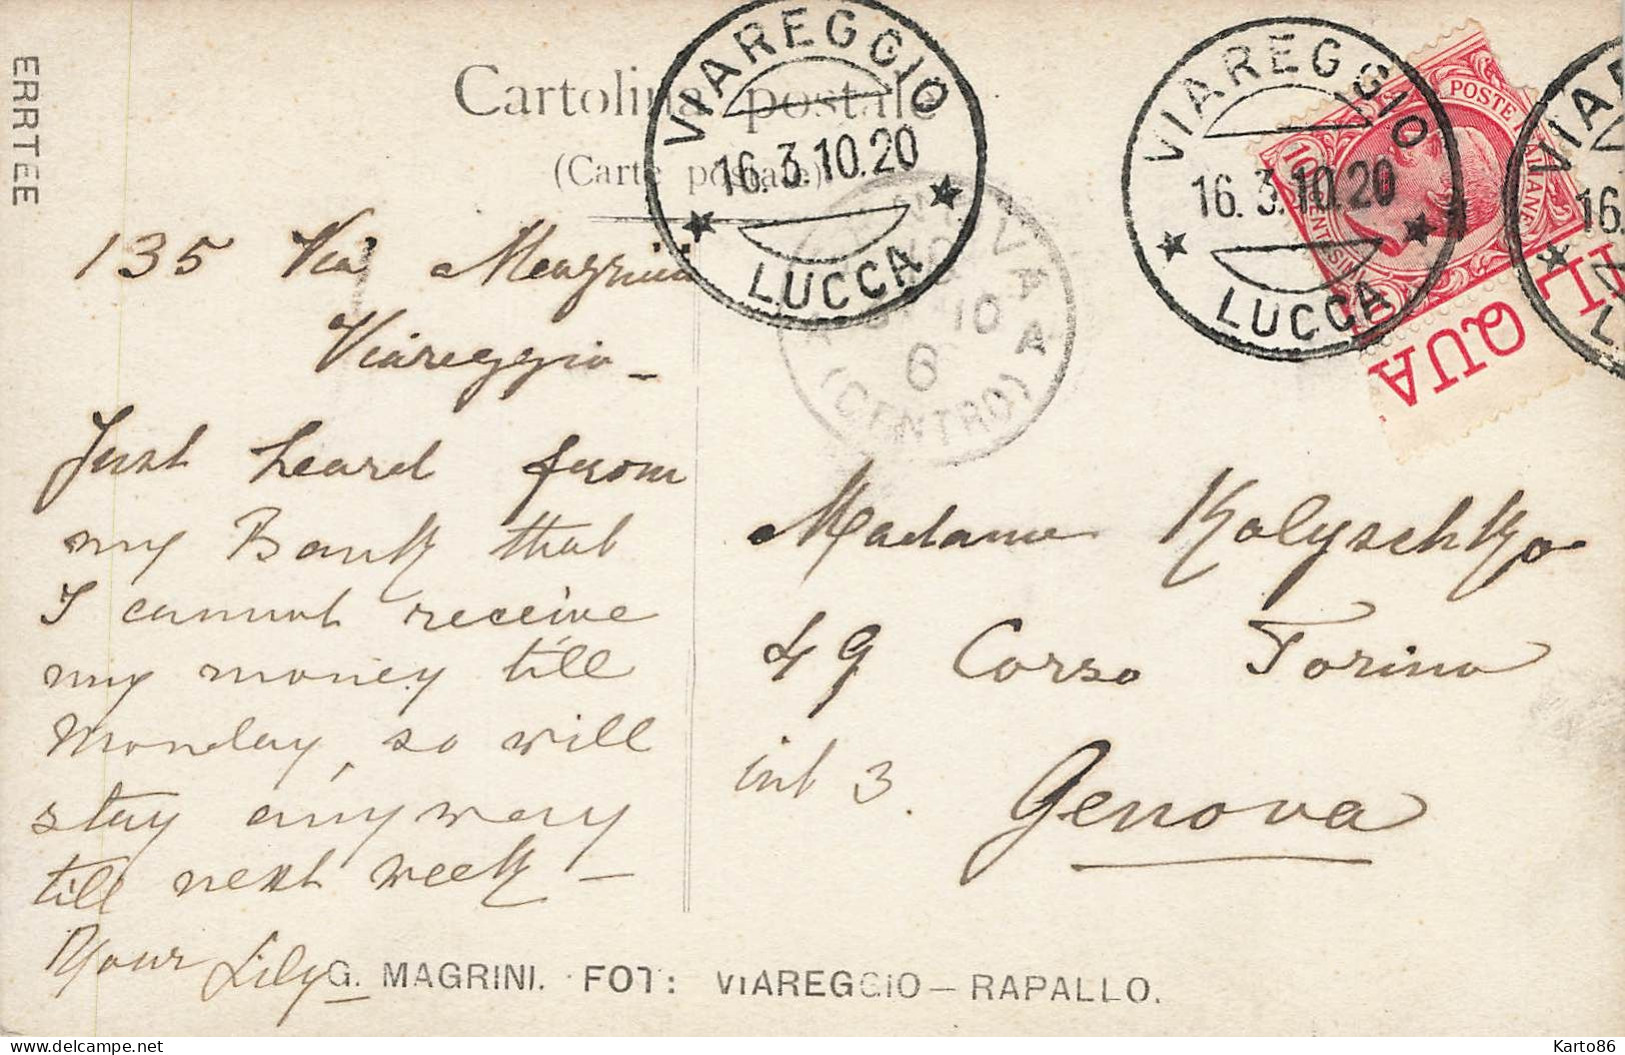 ERRTEE
Cartolina postale
(Carte postale)
VIAREGGIO
16.3.10.20
LUCCA
VIAREGGIO
16.3.10.20
LUCCA
POSTE ITALIANE
10 CENTESIMI
VIAR
16.
L
AL QUA
VA
10
6
A
(CENTRO)
135 Via
Viareggio –
Just heard from
my Bank that
I cannot receive
my money till
Monday, so will
stay anyway
till next week –
Your Lily
Madame Kolyschko
49 Corso Torino
int 3.
Genova
G. MAGRINI. FOT: VIAREGGIO – RAPALLO.
delcampe.net
Karto86